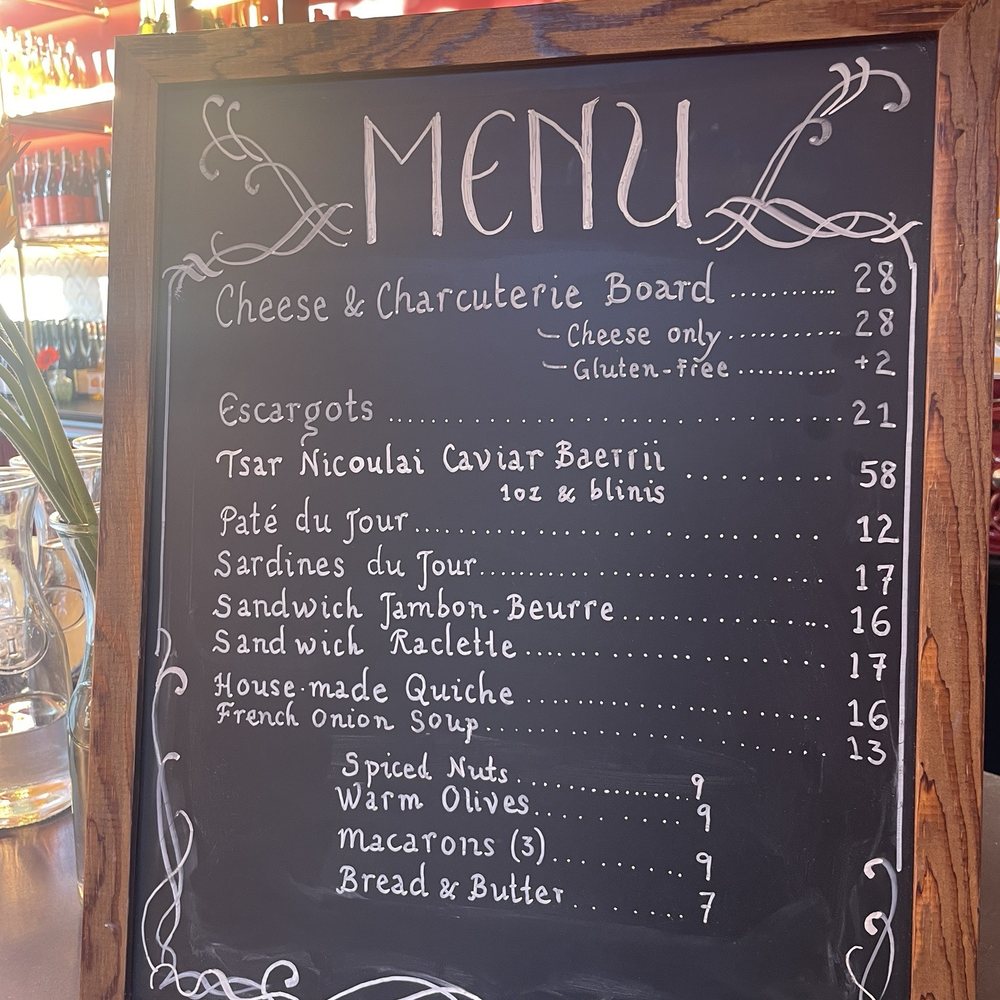 MENU
Cheese & Charcuterie Board ............ 28
- Cheese only ........... 28
- Gluten-free ........... +2
Escargots ........................ 21
Tsar Nicoulai Caviar Baerii ......... 58
1oz & blinis
Paté du Jour ........................ 12
Sardines du Jour ........................ 17
Sandwich Jambon-Beurre ................ 16
Sandwich Raclette ........................ 17
House-made Quiche ........................ 16
French Onion Soup ........................ 13
Spiced Nuts ................ 9
Warm Olives ............ 9
Macarons (3) ........... 9
Bread & Butter ......... 7